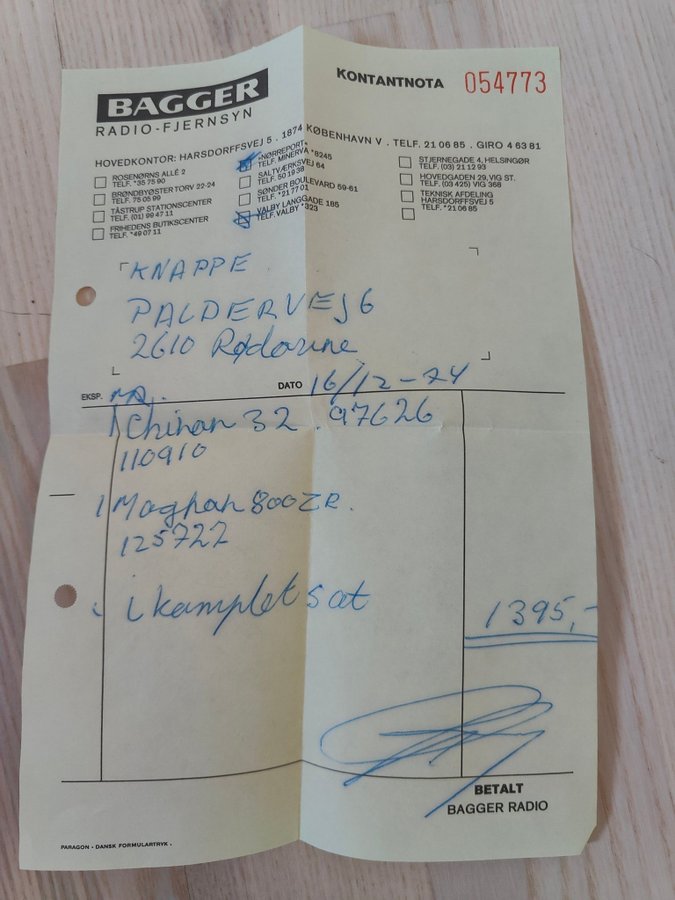 BAGGER
RADIO-FJERNSYN
KONTANTNOTA 054773
HOVEDKONTOR: HARSDORFFSVEJ 5 . 1874 KØBENHAVN V . TELF. 21 06 85 . GIRO 4 63 81
ROSENØRNS ALLÉ 2
TELF. *35 75 90
BRØNDBYØSTER TORV 22-24
TELF. 75 05 99
TÅSTRUP STATIONSCENTER
TELF. (01) 99 47 11
FRIHEDENS BUTIKSCENTER
TELF. *49 07 11
»NØRREPORT«
TELF. MINERVA *8245
SALTVÆRKSVEJ 64
TELF. 50 19 38
SØNDER BOULEVARD 59-61
TELF. *21 77 01
VALBY LANGGADE 185
TELF. VALBY *323
STJERNEGADE 4, HELSINGØR
TELF. (03) 21 12 93
HOVEDGADEN 29, VIG ST.
TELF. (03 425) VIG 368
TEKNISK AFDELING
HARSDORFFSVEJ 5
TELF. *21 06 85
KNAPPE
PALDERVEJ 6
2610 Rødovre
EKSP. DATO 16/12-74
1 Chinon 32 . 97626
110910
1 Magnan 800 ZR.
125722
i komplet sat 1395,-
BETALT
BAGGER RADIO
PARAGON - DANSK FORMULARTRYK .